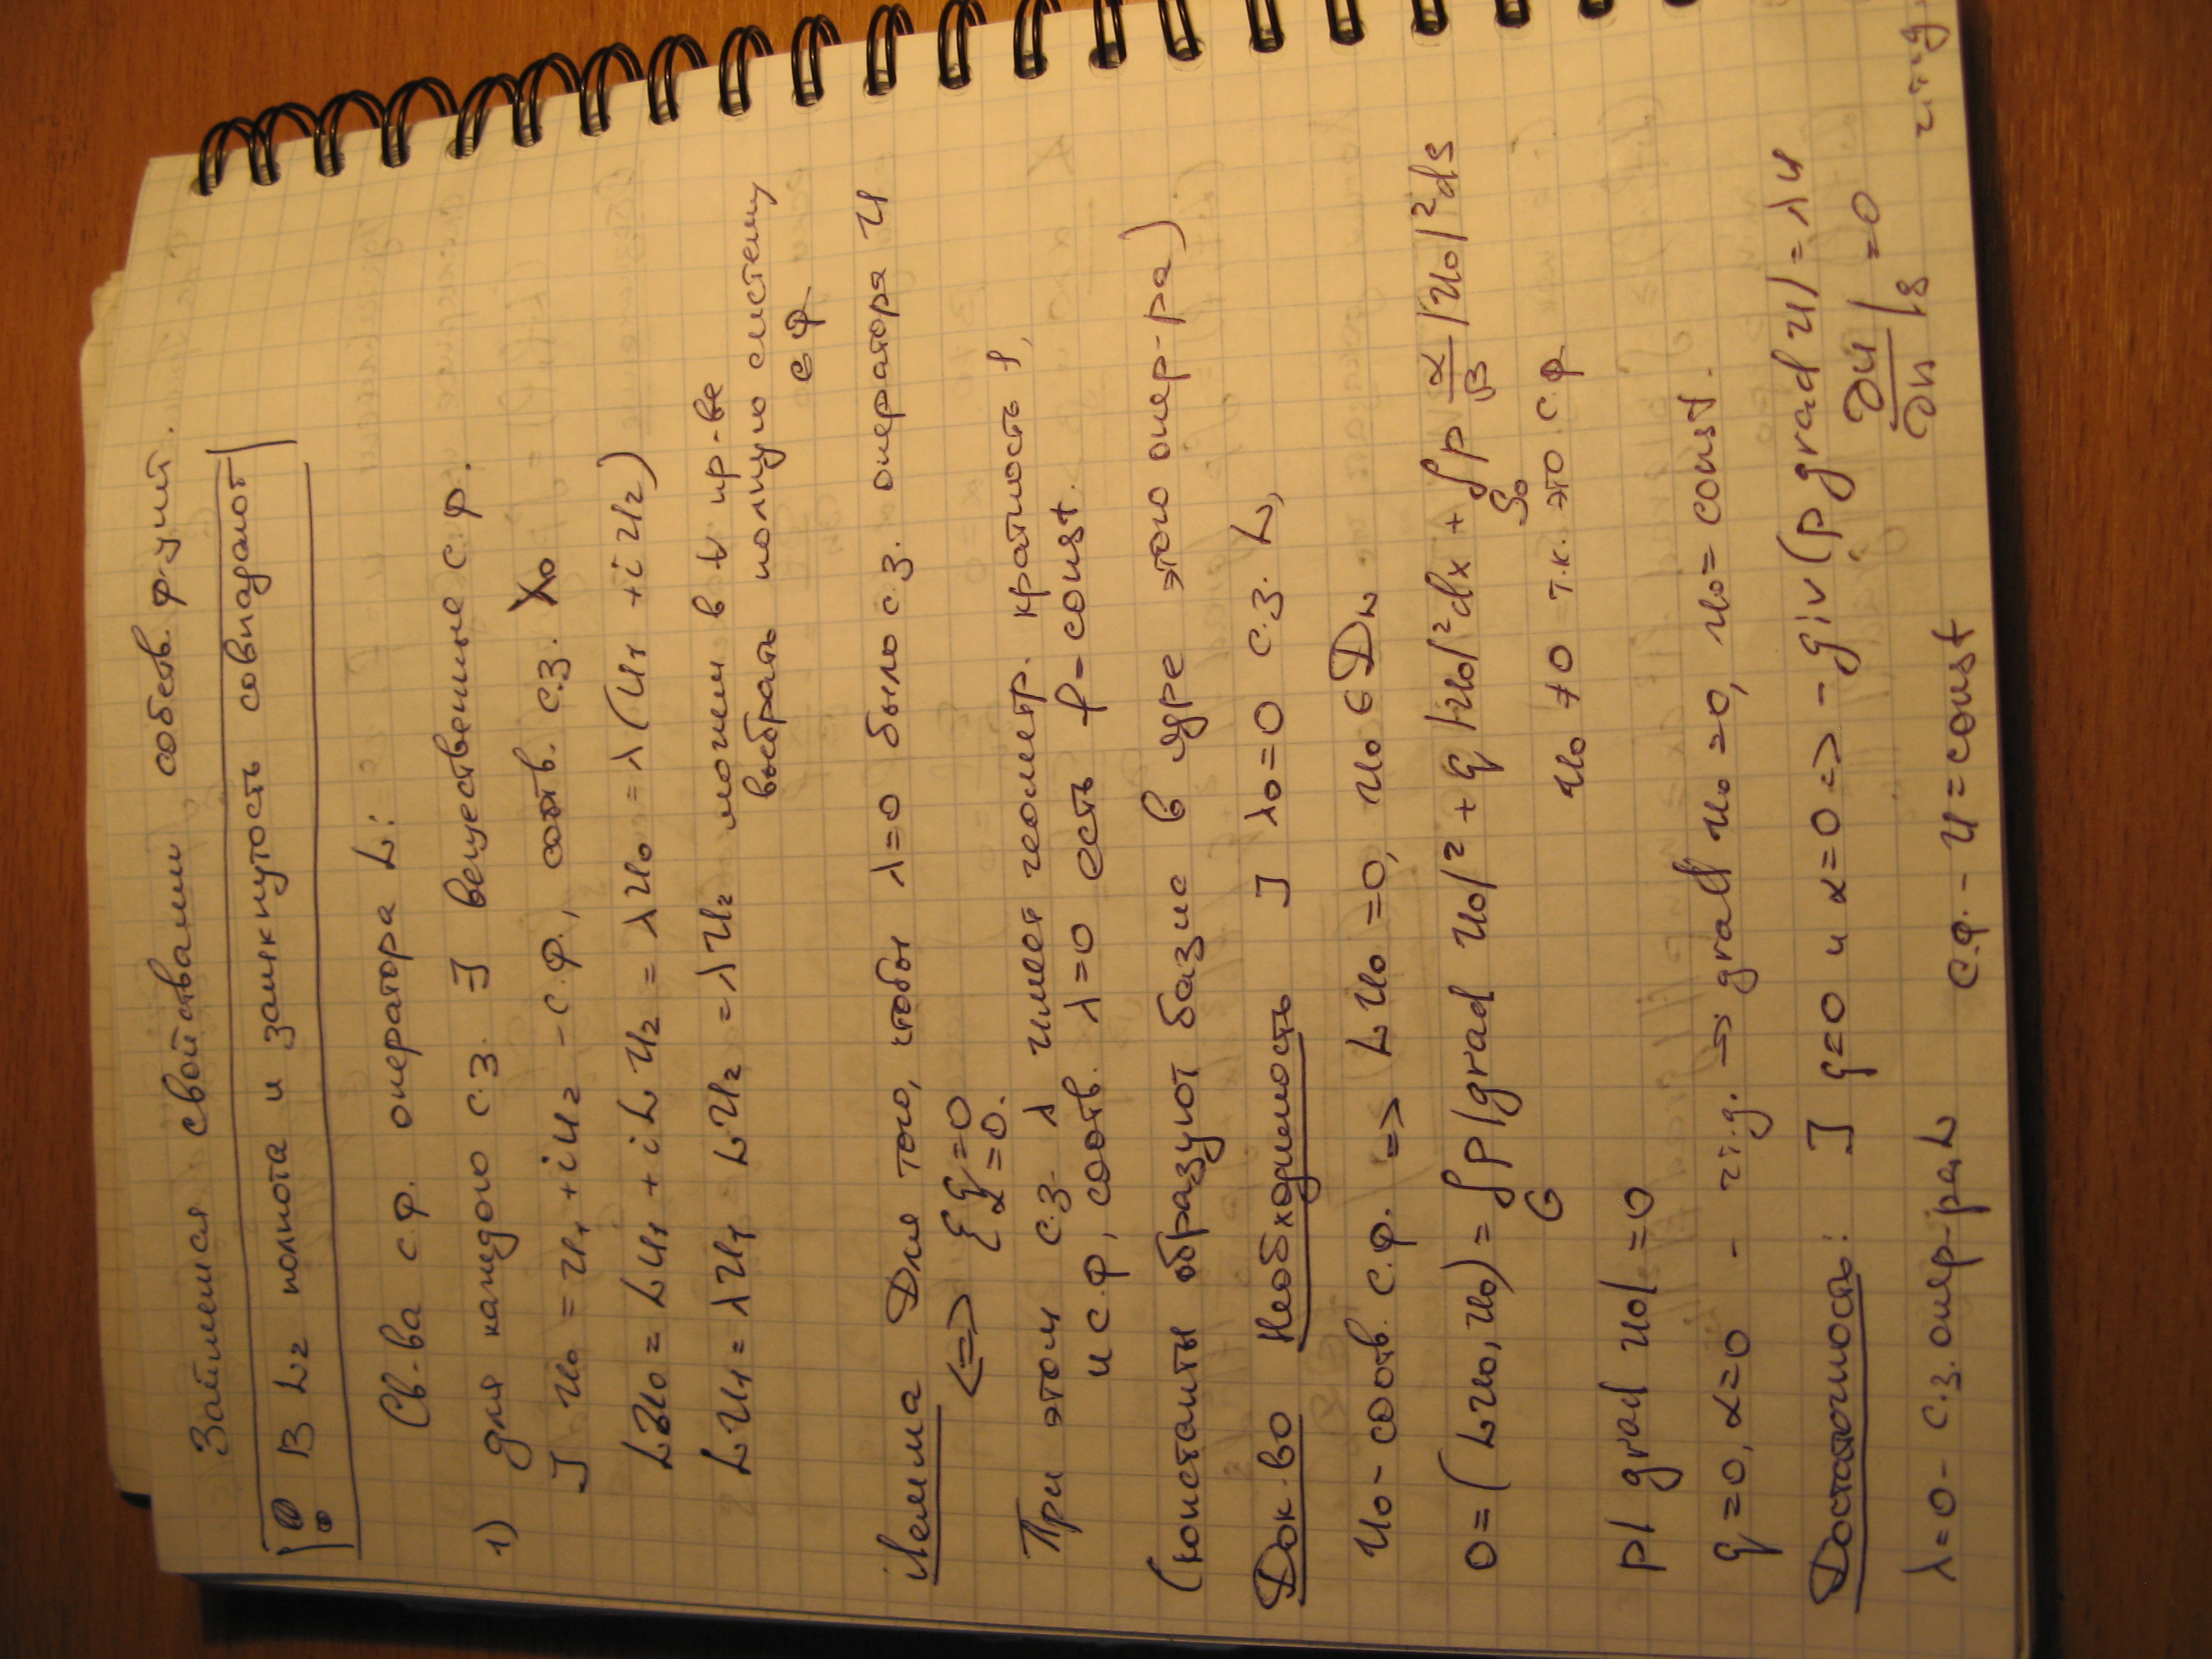 Займемся свойствами собств. ф-уий.
В L₂ полнота и замкнутость совпадают
Св-ва с.ф. оператора L:
1) для каждого с.з. ∃ вещественные с.ф.
J u₀ = u₁ + iu₂ - с.ф., соотв. с.з. λ₀
Lu₀ = Lu₁ + iLu₂ = λu₀ = λ(u₁ + iu₂)
Lu₁ = λu₁ Lu₂ = λu₂ можем в ∀ пр-ве
выбрать полную систему
с ф
Лемма Для того, чтобы λ=0 было с.з. оператора и
<=> { q=0
α=0.
При этом с.з. λ имеет геометр. кратность 1,
и с.ф, соотв. λ=0 есть f-const.
(константы образуют базис в ядре этого опер-ра)
Док-во Необходимость J λ₀=0 с.з. L,
u₀ - соотв. с.ф. => Lu₀=0, u₀ ∈ D_L
0=(Lu₀,u₀) = ∫_G p|grad u₀|² + q|u₀|²dx + ∫_S₀ p α/β |u₀|²ds
u₀ ≠ 0 т.к. это с.ф
p| grad u₀| = 0
q=0, α=0 - ч.т.д. → grad u₀=0, u₀=const.
Достаточность: J q=0 и α=0 => -div(p grad u) = λu
∂u/∂n|_S =0
λ=0 - с.з. опер-ра L с.ф. - u=const чтд.